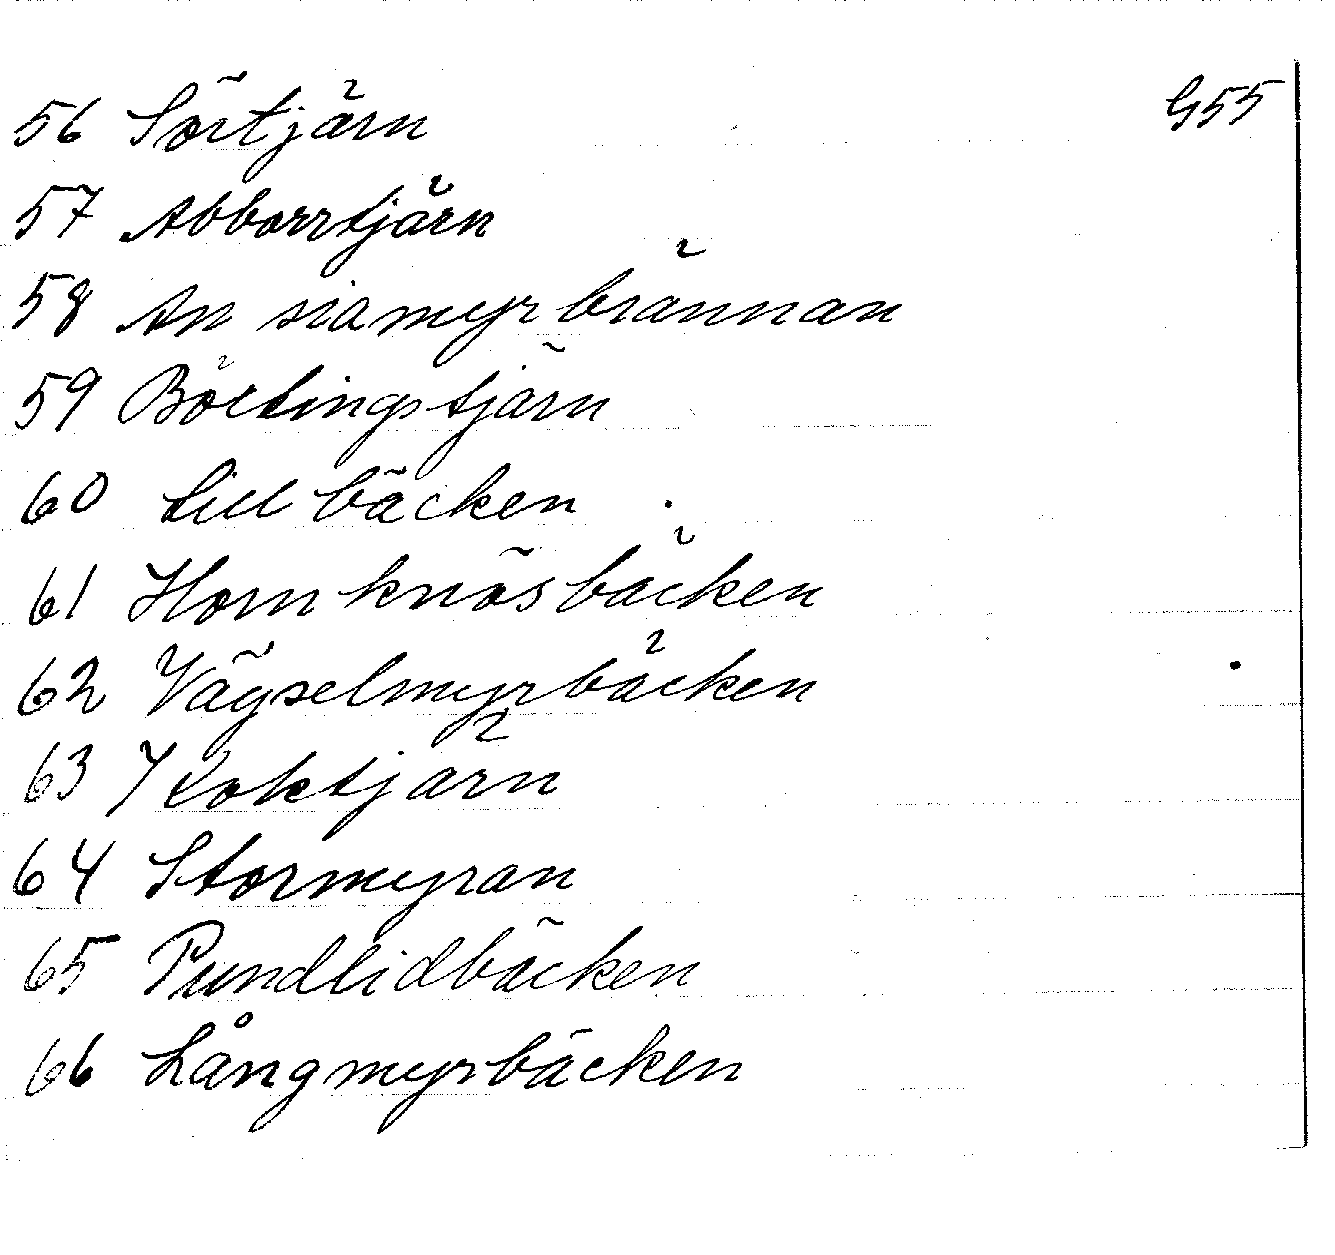 56 Sörtjärn G55
57 Abborrtjärn
58 An siamyrbrännan
59 Börtingstjärn
60 Lillbäcken
61 Hornknösbäcken
62 Vägselmyrbäcken
63 
64 Stormyran
65 Pundlidbäcken
66 Långmyrbäcken